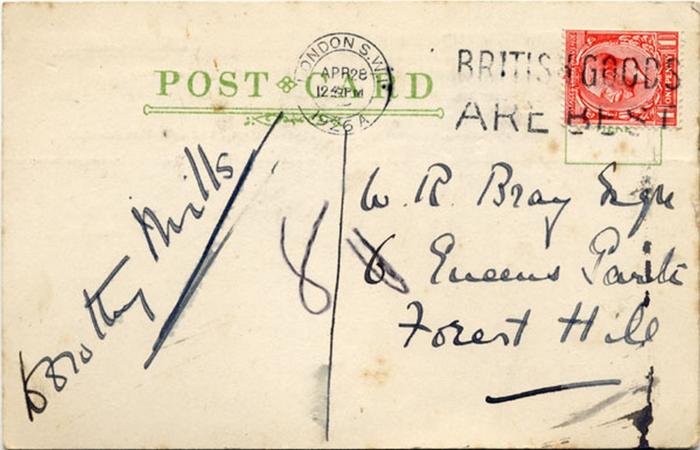 POST CARD
LONDON S.W.1
APR 28
1926 A
BRITISH GOODS
ARE BEST
Dorothy Mills
8
W. R. Bray Esqre
6 Queens Park
Forest Hill